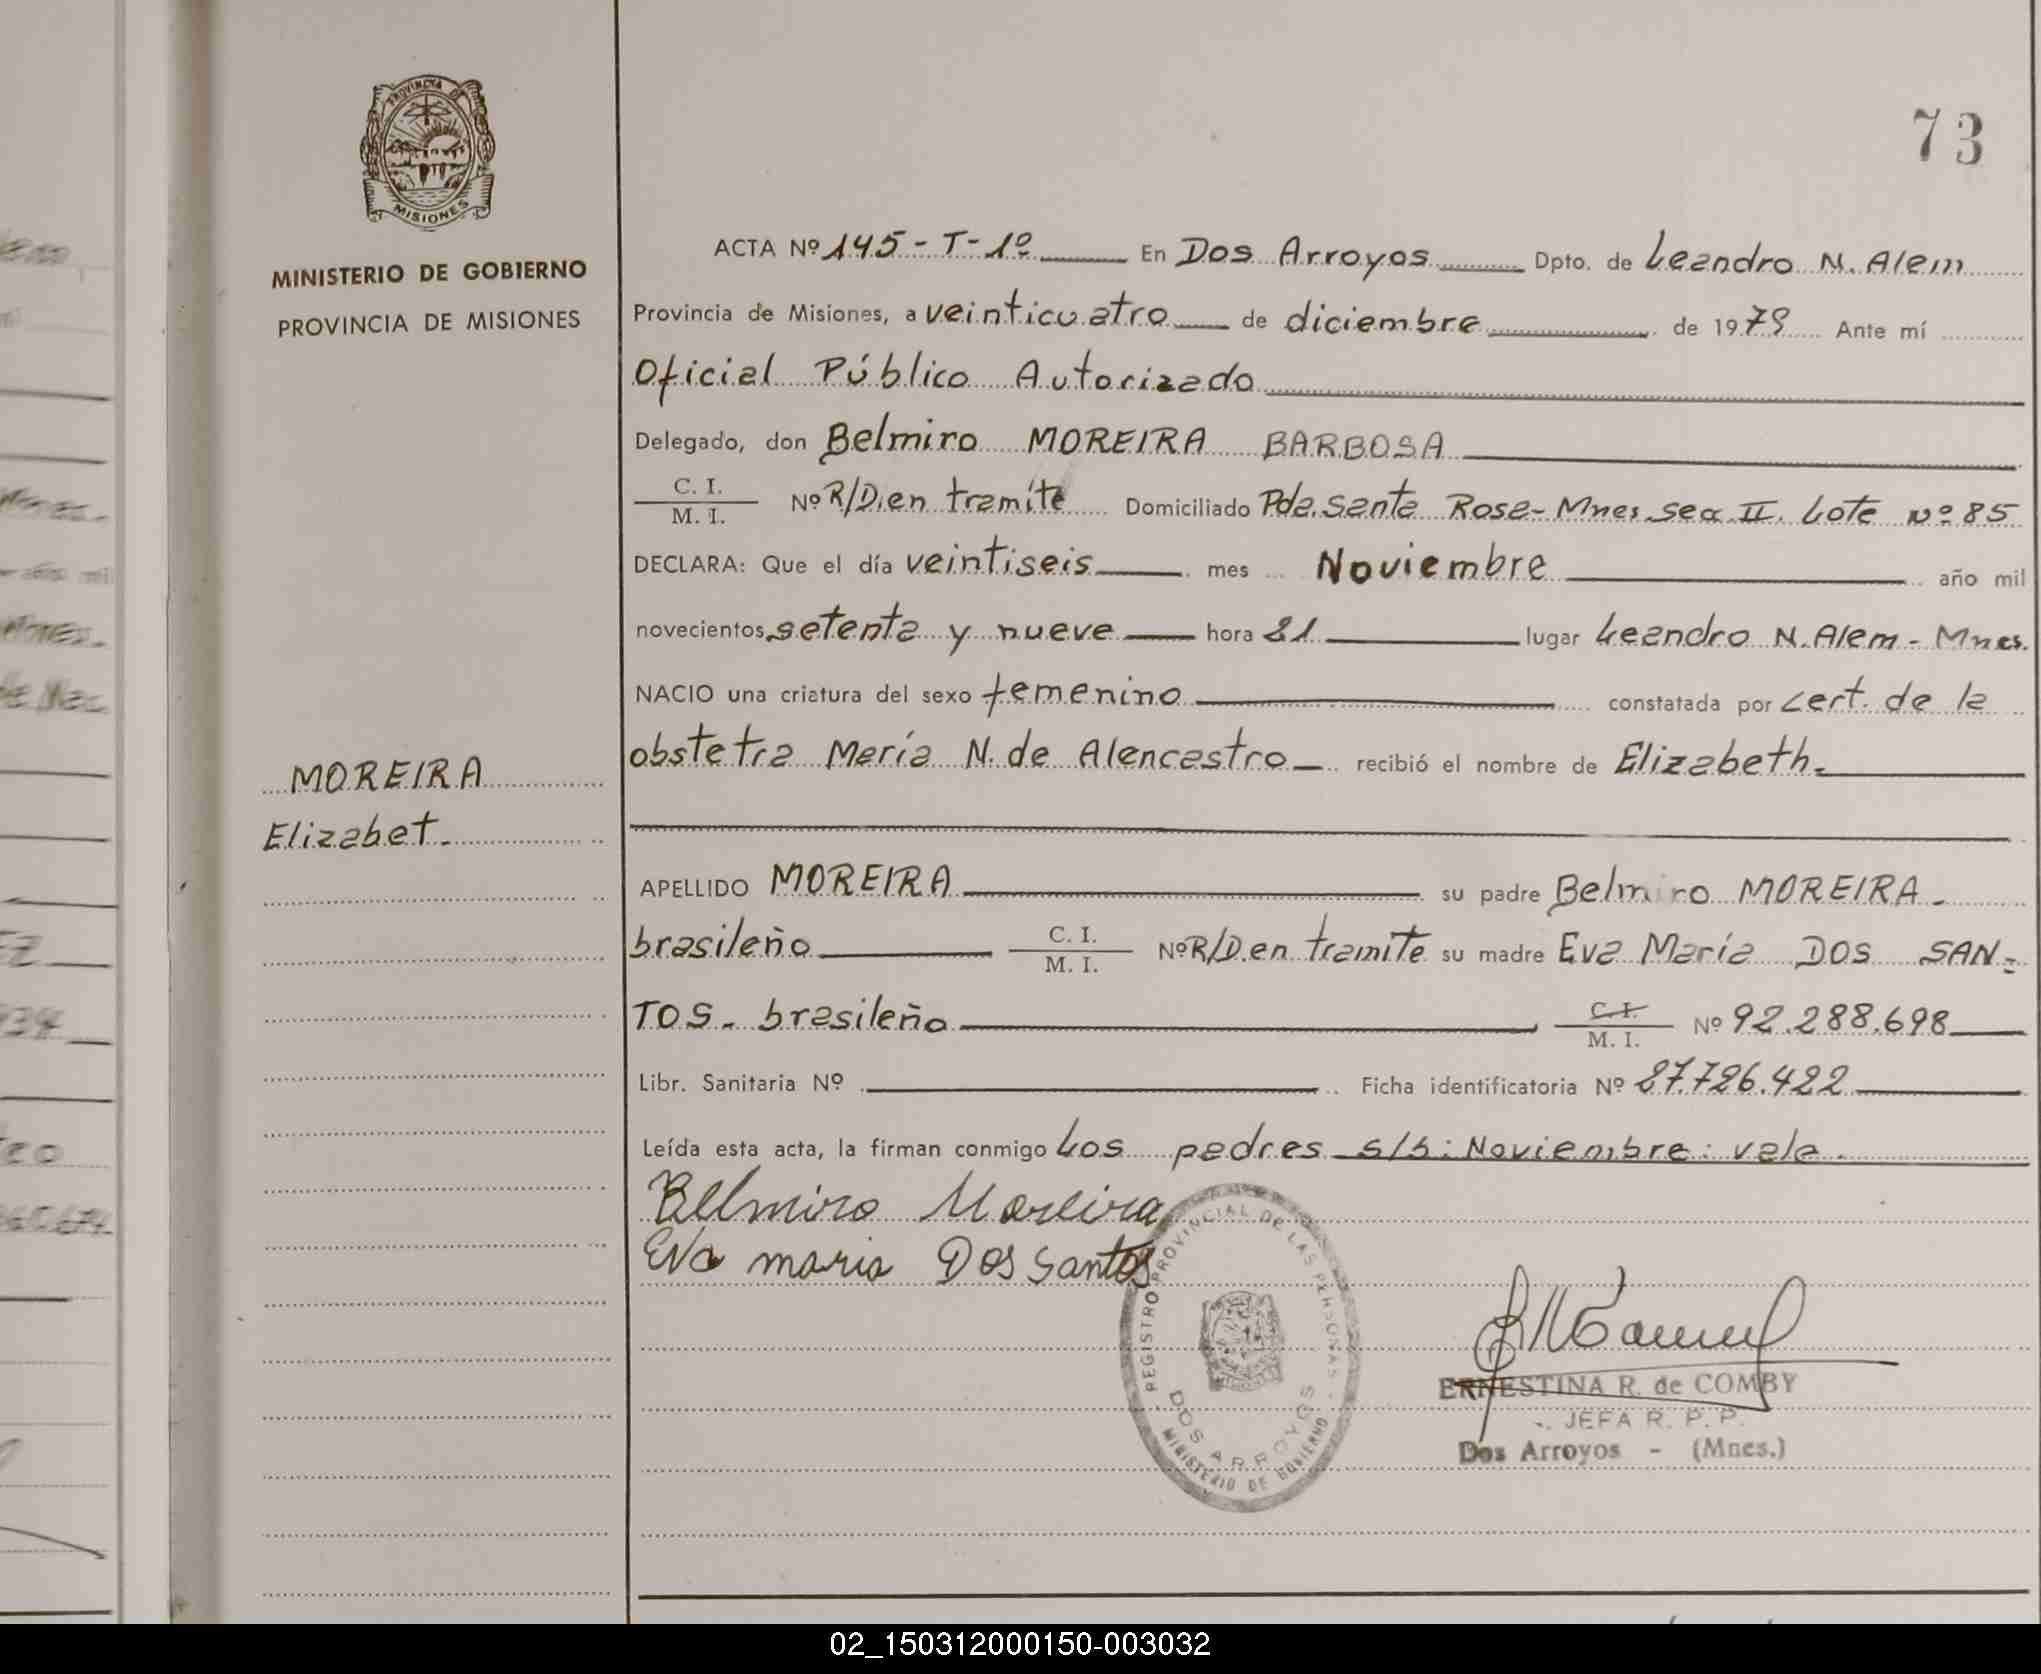 73
PROVINCIA DE
MISIONES
MINISTERIO DE GOBIERNO
PROVINCIA DE MISIONES
MOREIRA
Elizabet.
ACTA Nº 145 - T - 1º En Dos Arroyos Dpto. de Leandro N. Alem
Provincia de Misiones, a veinticuatro de diciembre de 1979 Ante mí
Oficial Público Autorizado
Delegado, don Belmiro MOREIRA BARBOSA
C. I. / M. I. Nº R/D. en tramite Domiciliado Pda. Santa Rosa - Mnes. Secc. II. Lote Nº 85
DECLARA: Que el día veintiseis mes Noviembre año mil
novecientos setenta y nueve hora 21 lugar Leandro N. Alem - Mnes.
NACIO una criatura del sexo femenino constatada por cert. de la
obstetra María N. de Alencastro recibió el nombre de Elizabeth.
APELLIDO MOREIRA su padre Belmiro MOREIRA.
brasileño C. I. / M. I. Nº R/D. en tramite su madre Eva María DOS SAN=
TOS. brasileño C. I. / M. I. Nº 92.288.698
Libr. Sanitaria Nº Ficha identificatoria Nº 27.726.422
Leída esta acta, la firman conmigo Los padres s/b: Noviembre: vale.
Belmiro Moreira
Eva maria Dos Santos
REGISTRO PROVINCIAL DE LAS PERSONAS
DOS ARROYOS
MINISTERIO DE GOBIERNO
ERNESTINA R. de COMBY
JEFA R. P. P.
Dos Arroyos - (Mnes.)
02_150312000150-003032